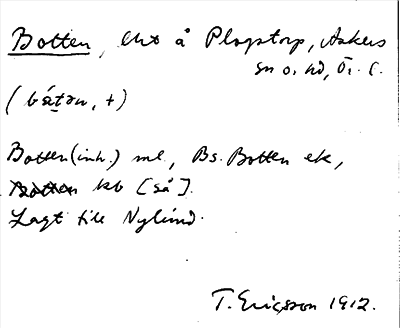 Botten, lht å Plogstorp, Askers
sn o. hd, Ör. l.
(bǻtən, +)
Botten (inh.) ml, Bs. Botten ek,
Botten kb [så].
Lagt till Nylund.
T. Ericsson 1912.